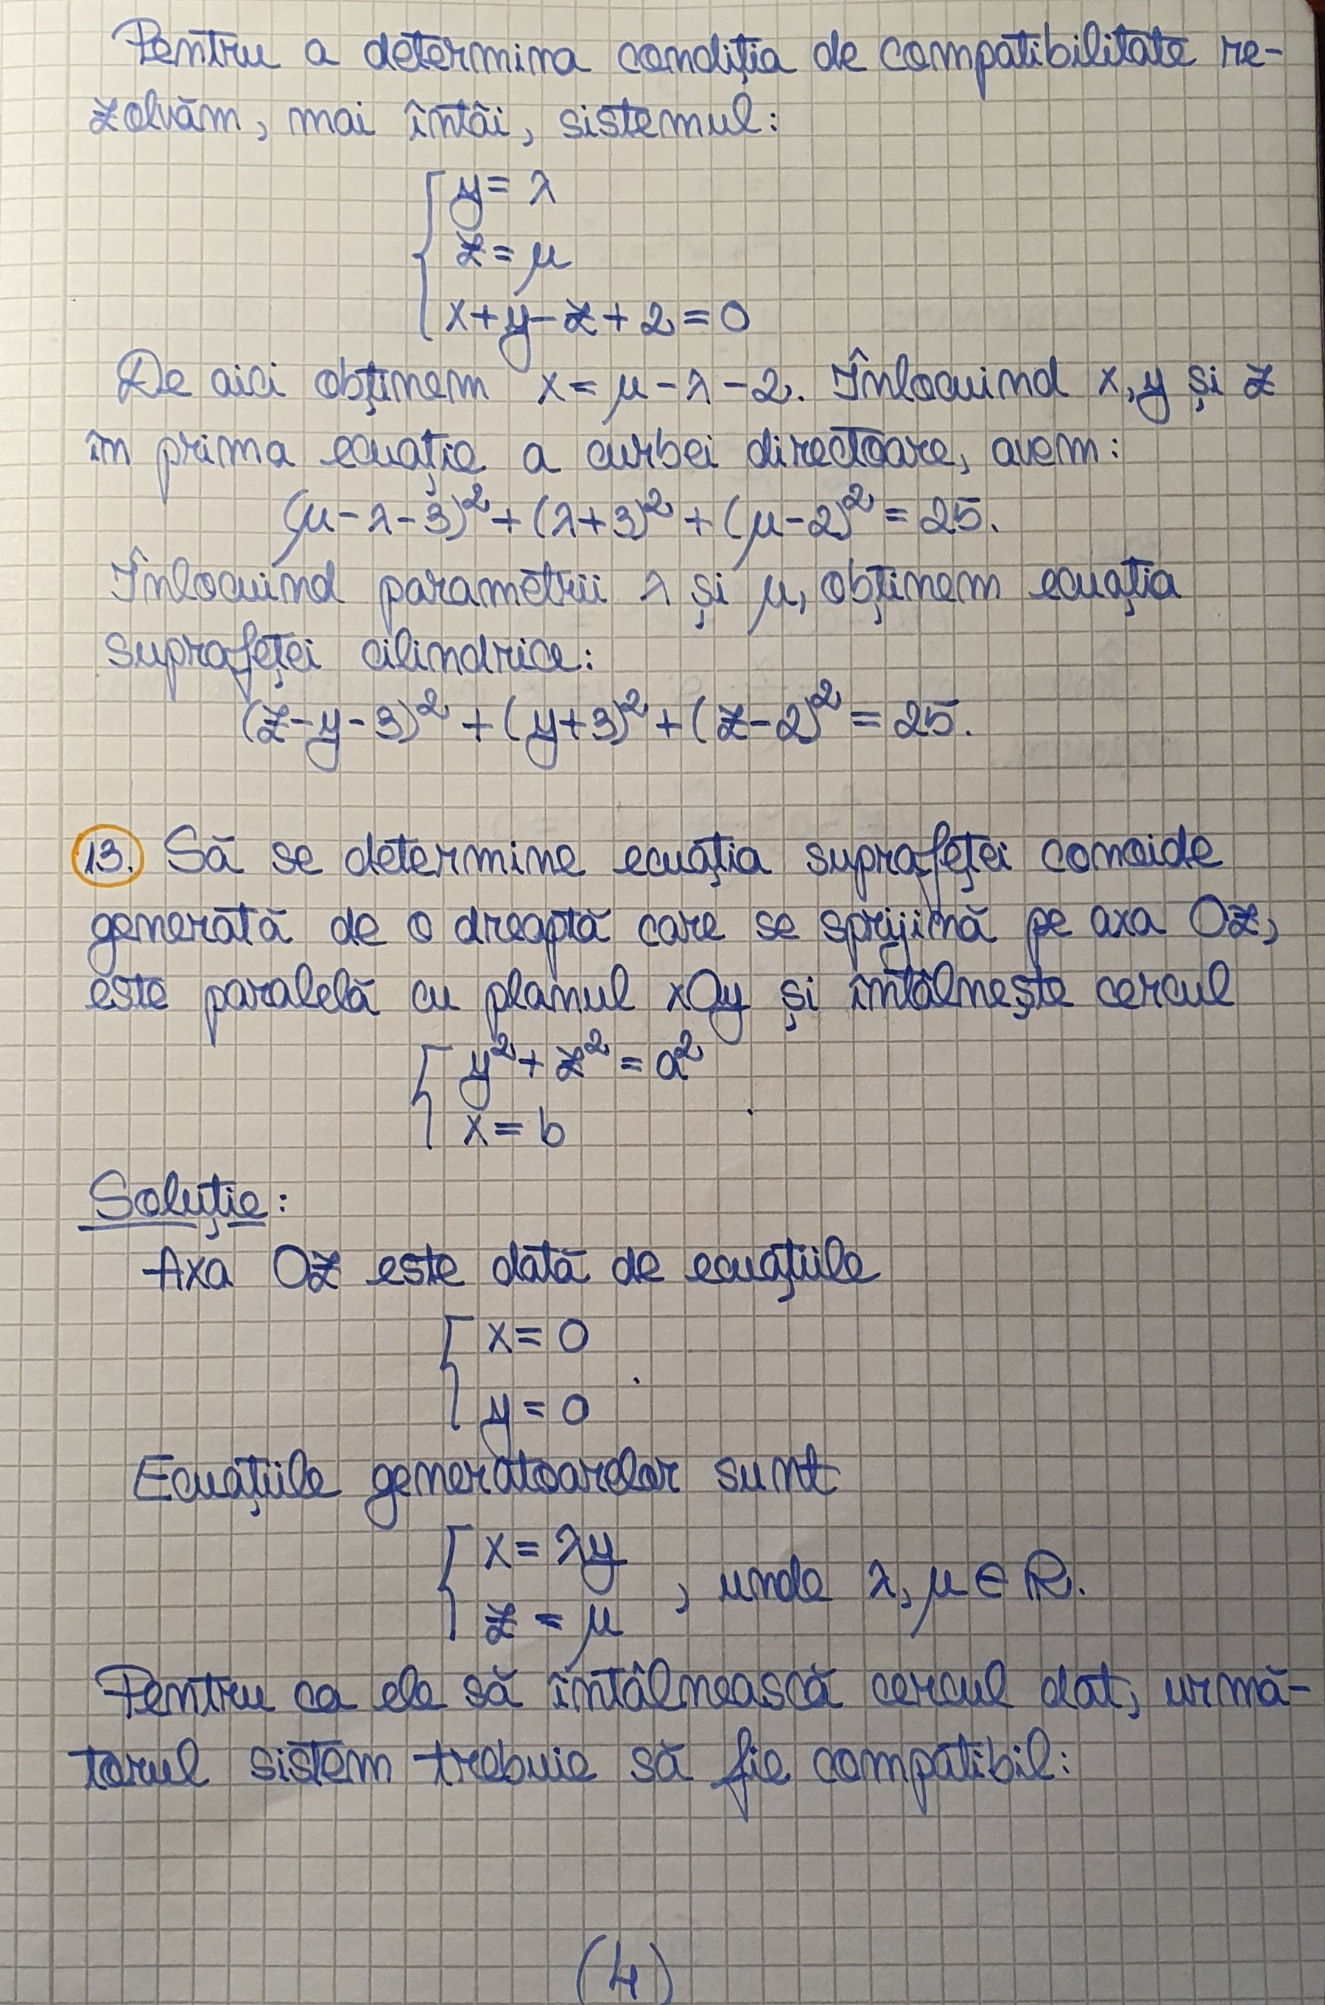 Pentru a determina condiția de compatibilitate re-
zolvăm, mai întâi, sistemul:
y = λ
z = μ
x + y - z + 2 = 0
De aici obținem x = μ - λ - 2. Înlocuind x, y și z
în prima ecuație a curbei directoare, avem:
(μ - λ - 3)² + (λ + 3)² + (μ - 2)² = 25.
Înlocuind parametrii λ și μ, obținem ecuația
suprafeței cilindrice:
(z - y - 3)² + (y + 3)² + (z - 2)² = 25.
13. Să se determine ecuația suprafeței conoide
generată de o dreaptă care se sprijină pe axa Oz,
este paralelă cu planul xOy și întâlnește cercul
y² + z² = a²
x = b
Soluție:
Axa Oz este dată de ecuațiile
x = 0
y = 0
Ecuațiile generatoarelor sunt
x = λy
z = μ , unde λ, μ ∈ ℝ.
Pentru ca ele să întâlnească cercul dat, urmă-
torul sistem trebuie să fie compatibil:
(4)